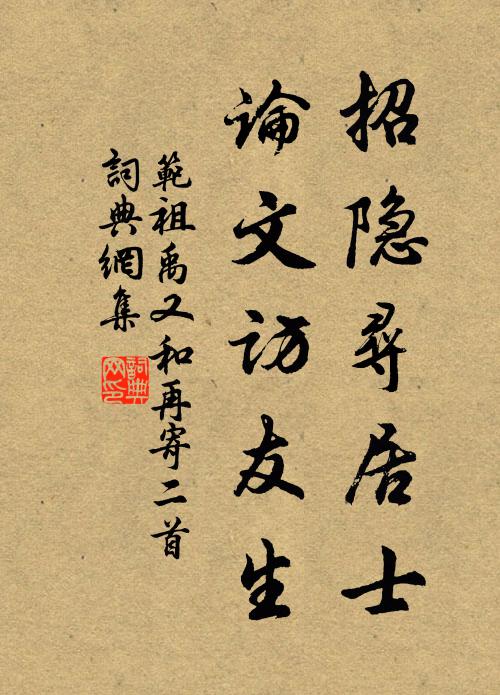 招隐尋居士
論文访友生
範祖禹又和再寄二首
詞典網集
詞典網印